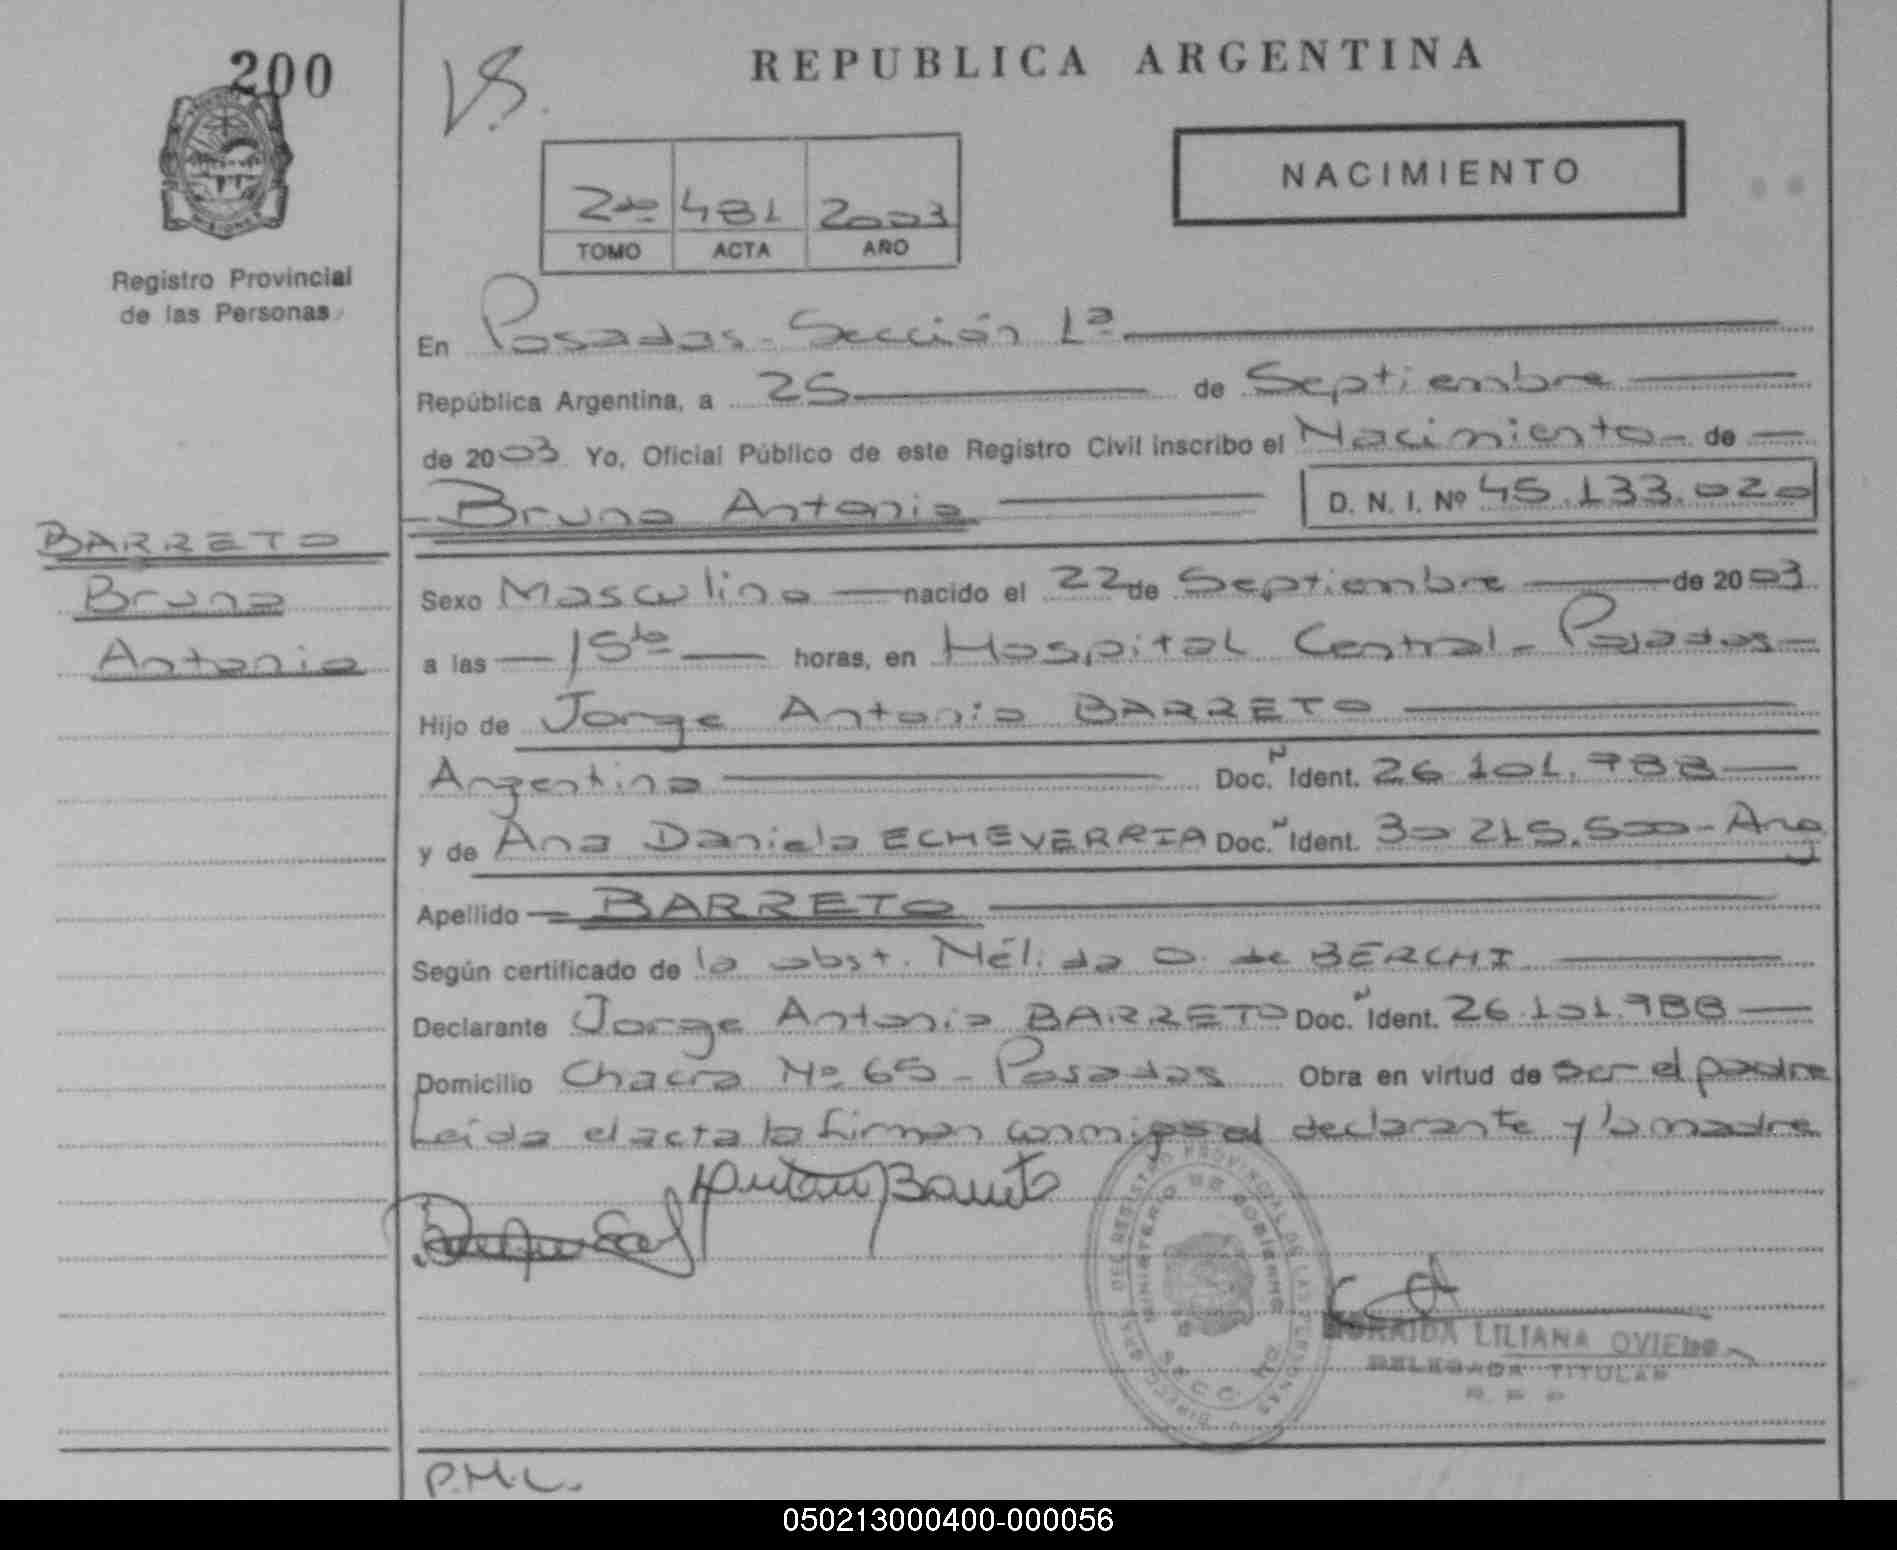 200
VS.
REPUBLICA ARGENTINA
NACIMIENTO
2do 481 2003
TOMO ACTA AÑO
Registro Provincial
de las Personas
En Posadas - Sección 1ª
República Argentina, a 25 de Septiembre
de 2003 Yo, Oficial Público de este Registro Civil inscribo el Nacimiento de
Bruno Antonio D. N. I. Nº 45.133.020
BARRETO
Bruno
Antonio
Sexo Masculino nacido el 22 de Septiembre de 2003
a las 15 horas, en Hospital Central - Posadas
Hijo de Jorge Antonio BARRETO
Argentino Doc. Ident. 26.101.988
y de Ana Daniela ECHEVERRIA Doc. Ident. 30.215.500 - Arg
Apellido BARRETO
Según certificado de la obst. Nélida O. de BERCHI
Declarante Jorge Antonio BARRETO Doc. Ident. 26.101.988
Domicilio Chacra Nº 65 - Posadas Obra en virtud de ser el padre
Leída el acta la firman conmigo el declarante y la madre
DEL REGISTRO PROVINCIAL DE LAS PERSONAS
MINISTERIO DE GOBIERNO
LILIANA OVIEDO
DELEGADA TITULAR
P.M.L.
050213000400-000056